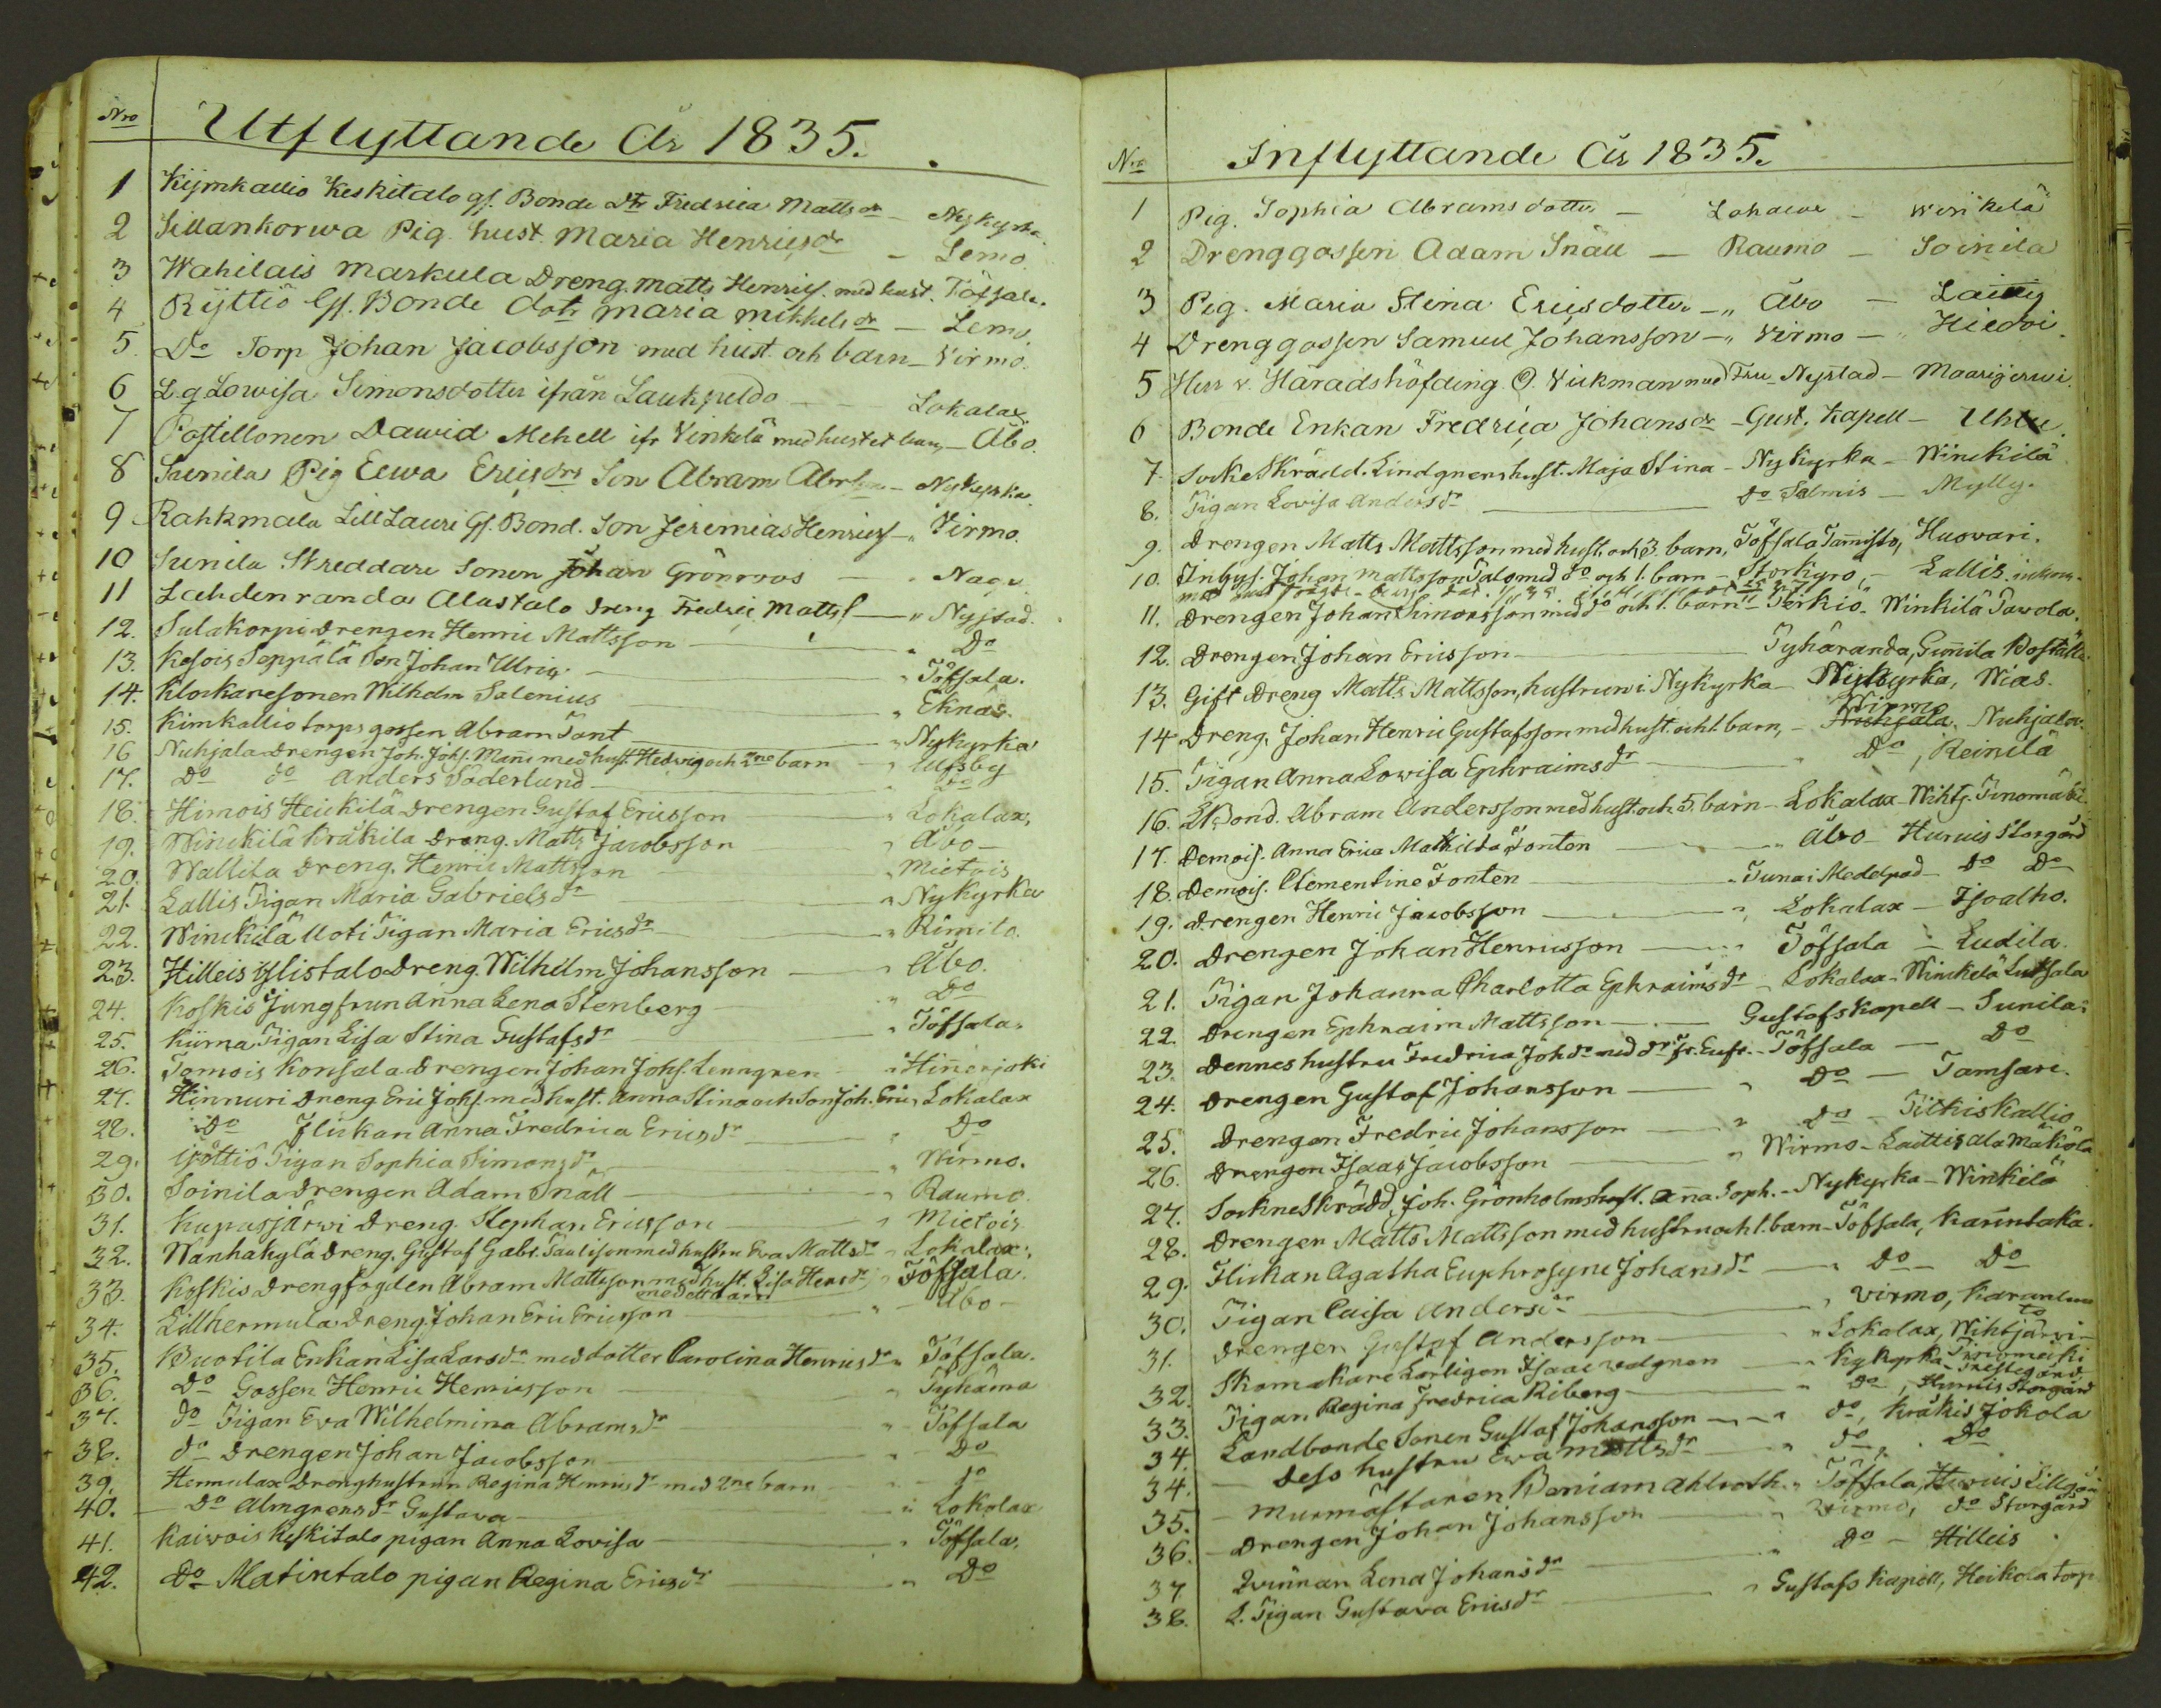 Nro Utflyttande År 1835.
1 Kijmkallio Keskitalo gf. Bonde Dtr Fredrica Mattsdr – Nykyrka
2 Sillankorwa Pig. hust. Maria Henricsdr – Lemo
3 Wahilais Markula Dreng. Matts Henrics. med hust. Töfsala.
4 Ryttiö Gf. Bonde dotr Maria Mikkelsdr – Lemo
5 Do Torp Johan Jacobsson med hust. och barn – Virmo.
6 L.g. Lowisa Simonsdotter ifrån Laukpeldo – Lokalax
7 Postillonen Dawid Mehell ifr Vinkelä med hust et barn, – Åbo.
8 Sunila Pig Eewa Ericsdrs Son Abram – Nykyrka
9 Rahkmala Lill Lauri Gf. Bond. Son Jeremias Henrics – " Virmo.
10 Sunila Skreddare Sonen Johan Grönroos – " Nagu
11 Lahdenranda Alastalo dreng Fredric Matts. – " Nystad.
12. Sulakorpi Drengen Henric Mattsson – " Do
13. Kesois Seppälä Son Johan Ulric – " Töfsala.
14. Klockaresonen Wilhelm Salenius – " Eknäs.
15. Kimkallio torps gossen Abram Tant – " Nykyrka
16 Nuhjala drengen Joh. Johs. Manni med hust. Hedvig och 2ne barn – " Ulfsby
17. Do do Anders Söderlund – " Do
18. Himois Heickilä drengen Gustaf Ericsson – " Lokalax,
19. Winckilä Kräkilä dreng. Matts Jacobsson – " Åbo –
20. Wallila dreng. Henric Mattsson – " Mietois
21. Lallis Pigan Maria Gabrielsdr – " Nykyrka
22. Winckilä Uoti Pigan Maria Ericsdr – " Rimito.
23. Hilleis Ylistalo Dreng. Wilhelm Johansson – " Åbo.
24. Koskis Jungfrun Anna Lena Stenberg – " Do
25. Kiirna Pigan Lisa Stina Gustafsdr – " Töfsala.
26. Tomois Konsala drengen Johan Johs. Lenngren – " Hinerjoki
27. Hinnuri Dreng Eric Johs. med hust. Anna Stina och Son Joh. Eric, Lokalax
28. Do Flickan Anna Fredrica Ericsdr – " Do
29. Pigan Sophia Simonsdr – " Wirmo.
30. Soinila Drengen Adam Snäll – " Raumo.
31. Kupusjärwi dreng. Stephan Ericsson – " Mietois
32. Wanhakylä dreng. Gustaf Gabr. med hustru Eva Mattsdr " Lokalax,
33. Koskis drengfogden Abram Mattsson med hust. Lisa Hensdr " Töfsala.
med ett barn
34. Lillhermula Dreng Johan Eric Ericsson – " Åbo –
35. Buotila Enkan Lisa Larsdr med dotter Carolina Henricsdr " Töfsala.
36. Do Gossen Henric Henricsson – " Pyhäma
37. do Pigan Eva Wilhelmina Abramsdr – " Töfsala
38. do drengen Johan Jacobsson – " Do
39. Hermulax Drenghustrun Regina Henricsdr med 2ne barn – " do
40. Do Almgrens dr Gustava – " Lokalax
41. Kaivois Keskitalo pigan Anna Lovisa – " Töfsala.
42. Do Matintalo pigan Regina Ericsdr – " Do
Nro Inflyttande År 1835.
1 Pig. Sophia Abrams dotter – – Winkelä
2 Drenggossen Adam Snäll – Raumo – Soinila
3 Pig. Maria Stina Ericsdotter – " Åbo –
4 Drenggossen Samuel Johansson – " Virmo – Hiedoi
5 Herr v. Häradshöfding O. Vickman med Fru – Nystad – Maarjerwi.
6 Bonde Enkan Fredrica Johansdr – Gust. Kapell –
7. Socke Skrädd. Lindgrens hust. Maja Stina – Nykyrka – Winckilä
8. Pigan Lovisa Andersdr – Do Salmis – Mylly.
9. Drengen Matts Mattsson med hust. och 3. barn, Töfsala Tamisto, Huovari.
10. Inhys. Johan Mattsson Salo med do och 1. barn – Storkyro, – Lallis
11. drengen Johan Simonsson med do och 1. barn – Perkiö – Winkilä Tawola.
12. Drengen Johan Ericsson – Pyhäranda, Sunila Boställe
13. Gift dreng Matts Mattsson, hustrun i Nykyrka – Nykyrka, Wias.
14. Dreng. Johan Henric Gustafsson med hust. och 1. barn, – Wirmo Nuhjala. Nuhjala.
15. Pigan Anna Lowisa Ephraimsdr – " Do, Reinilä
16. Abram Andersson med hust. och 5. barn – Lokalax – Wihtj. Tinomäki.
17. Demois. Anna Erica Mathilda Fonten – " Åbo – Hurnis Storgård
18. Demois. Clementine Fonten – Tuna i Medelpad – Do Do
19. drengen Henric Jacobsson – " Lokalax – Isoalho.
20. Drengen Johan Henricsson – " Töfsala – Ludila.
21. Pigan Johanna Charlotta Ephraimsdr – Lokalax – Winckelä Lutsala
22. drengen Ephraim Mattsson – Gustafs Kapell – Sunila
23. Dennes hustru Fredrica Johdr med dr Fr. Eufr. – Töfsala – Do
24. Drengen Gustaf Johansson – " Do – Tamsare.
25. Drengen Fredric Johansson – " Do – Pitkiskallio
26. Drengen Isaac Jacobsson – " Wirmo – Laittis ala Mäkölä
27. Sockne Skrädd. Joh. Grönholms hust. Anna Soph. – Nykyrka – Winkilä
28. Drengen Matts Mattsson med hustru och 1. barn – Töfsala, Karintaka.
29. Flickan Agatha Euphrosyne Johansdr – " Do – Do
30. Pigan Caisa Andersdr – " Virmo,
31. Drengen Gustaf Andersson – " Lokalax, Wihtjärvi
32. Skomakare Lärlingen Isaac – " Nykyrka
33. Pigan Regina Fredrica Riberg – " Do, Hurnis Storgård
34. Landbonde Sonen Gustaf Johansson – " do, Kräkis Jokola
34. – Dess hustru Eva Mattsdr – " do Do
35. – Murmästaren Beniam Ahlroth " Töfsala, Hurnis Lillgård
36. – Drengen Johan Johansson – " Virmo, do Storgård
37. Qvinnan Lena Johansdr – " Do – Hilleis
38. L. Pigan Gustava Ericsdr – " Gustafs Kapell, Heikola torp